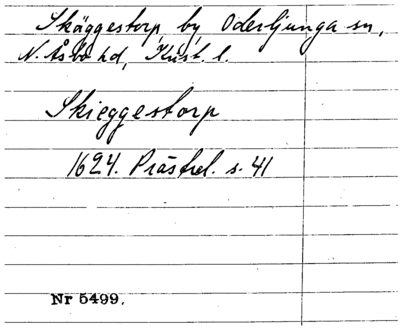 Skäggestorp, by, Oderljunga sn,
N. Åsbo hd, Krist. l.
Skieggestorp
1624. Prästrel. s. 41
Nr 5499.